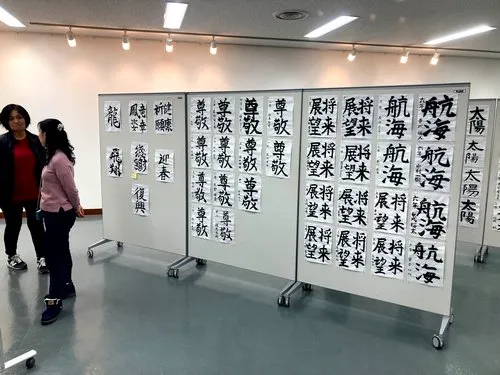 龍
竜章鳳姿
健康祈願
飛翔
迎春
復興
尊敬 尊敬 尊敬 尊敬
尊敬 尊敬 尊敬 尊敬
尊敬 尊敬 尊敬
尊敬 尊敬
将来展望 将来展望 航海 航海
将来展望 将来展望 航海 航海
将来展望 将来展望 航海 航海
将来展望 将来展望 航海 航海
太陽
太陽
太陽
太陽